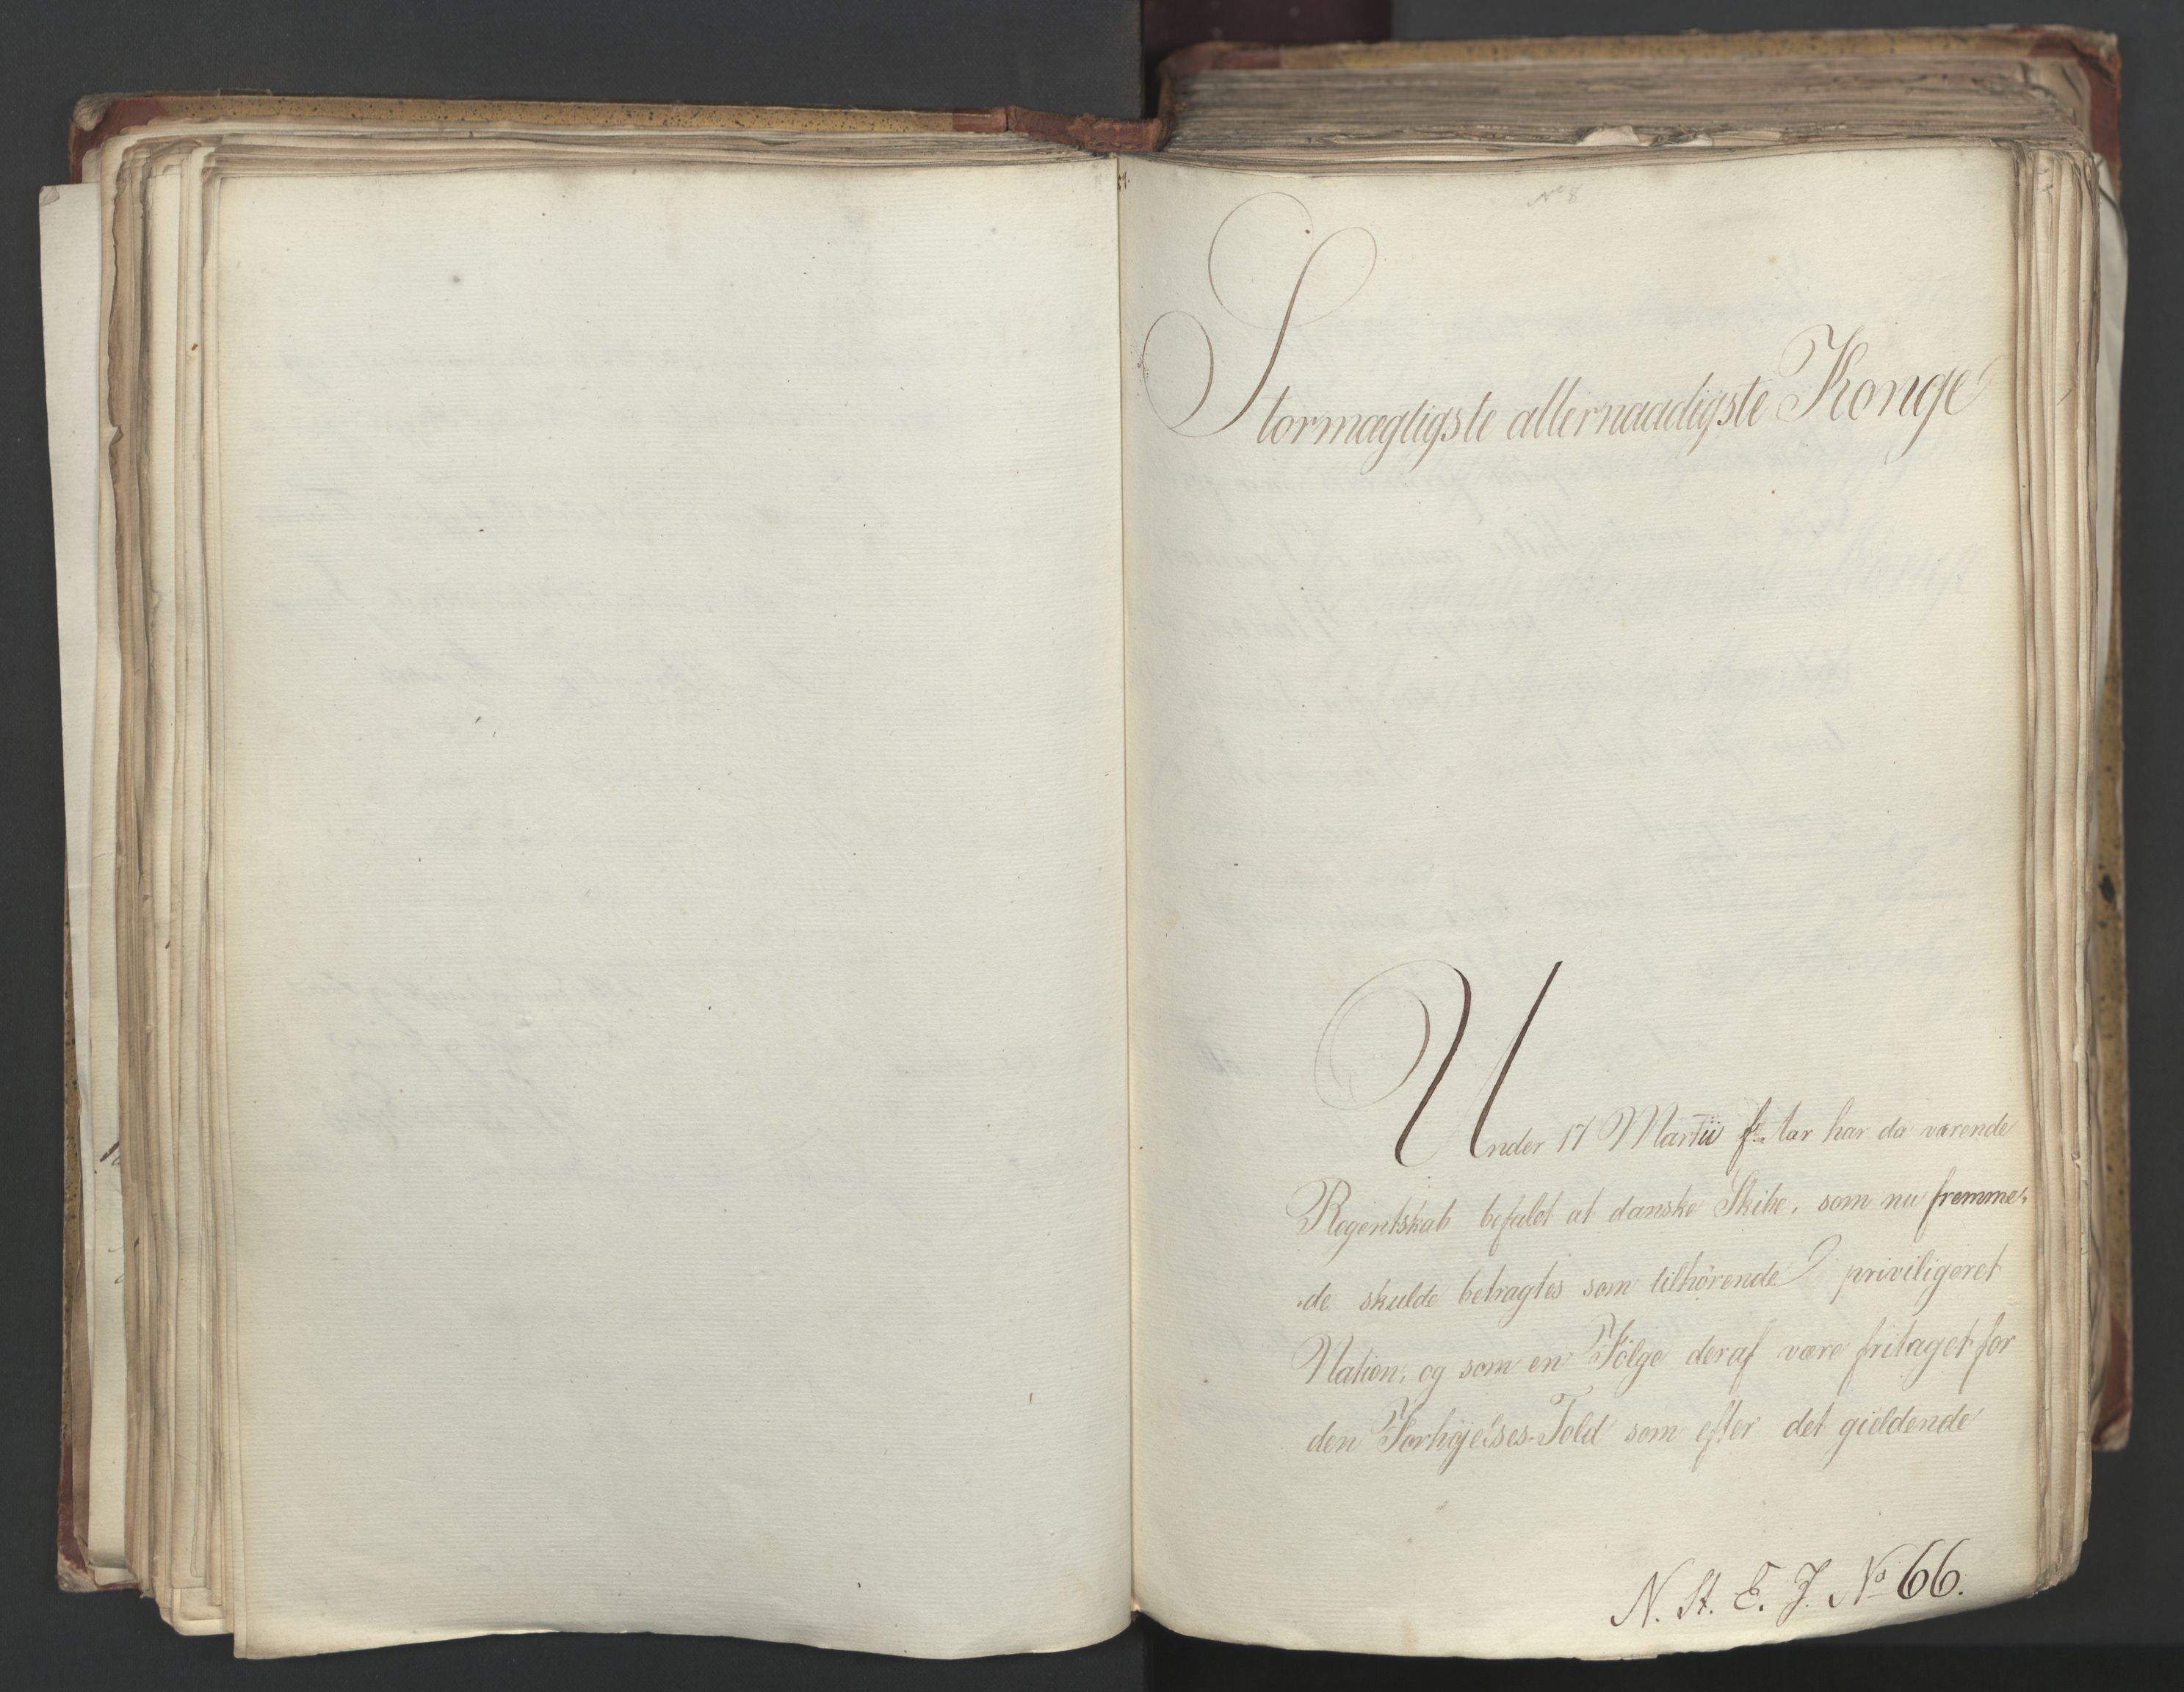 No 8
Stormægtigste allernaadigste Konge
Under 17 Martii f. Aar har da værende
Regentskab befalet at danske Skibe, som nu fremme-
-de skulde betragtes som tilhörende priviligeret
Nation, og som en Fölge deraf være fritaget for
den Forhøjelses-Told som efter det gieldende
N. St. E. J. No 66.